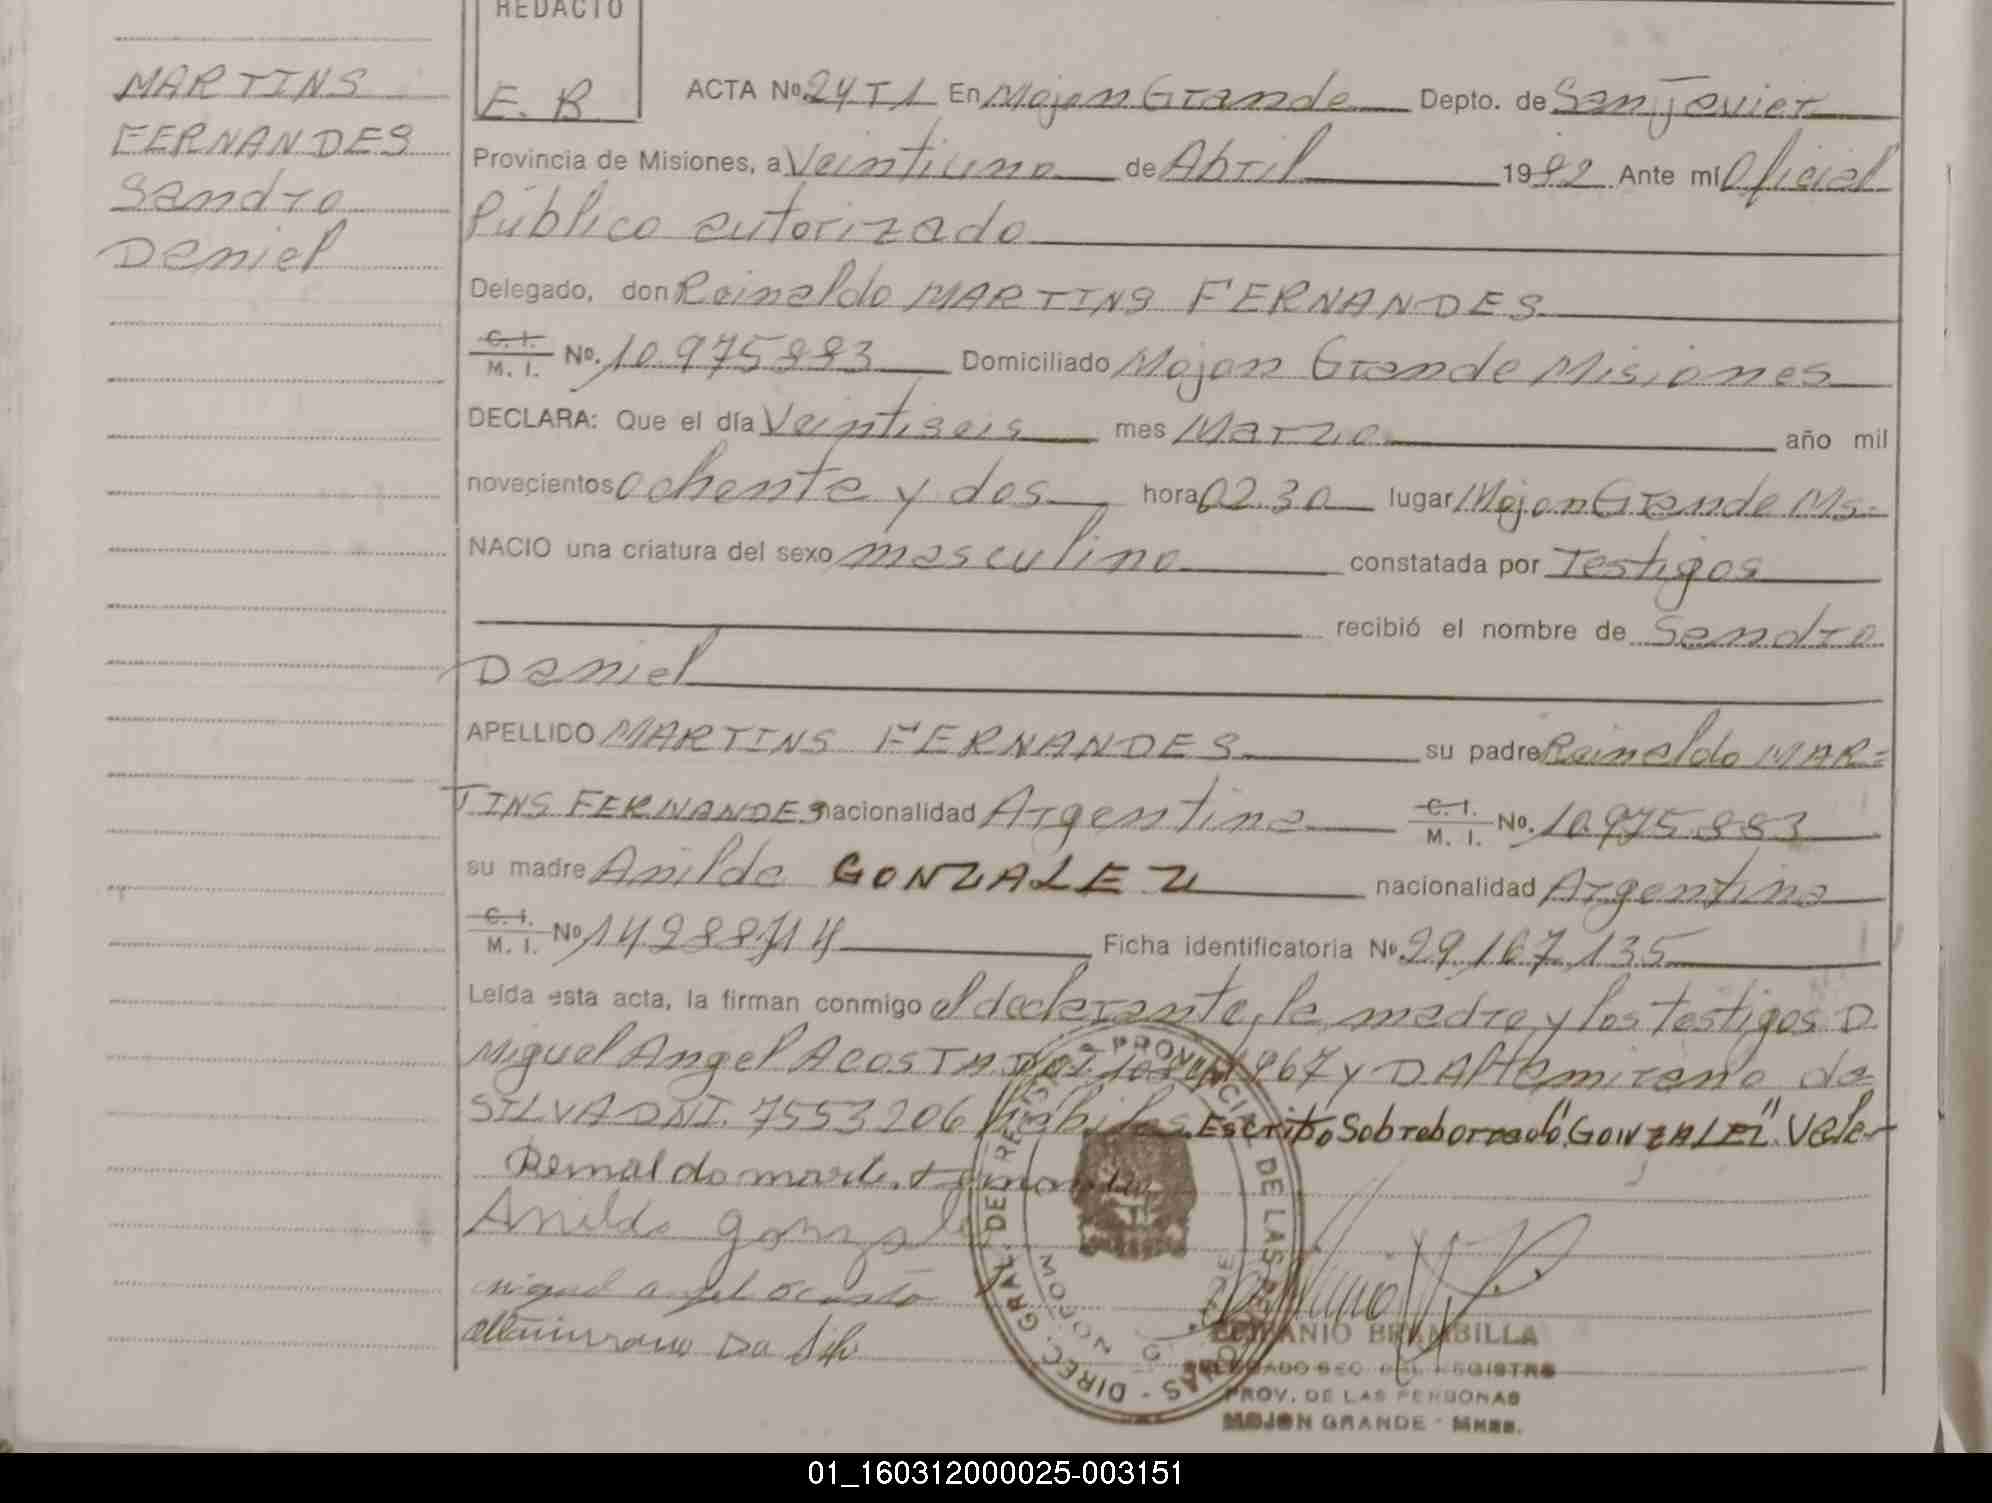 REDACTO
E. B.
MARTINS
FERNANDES
Sandro
Daniel
ACTA Nº 24 T 1 En Mojon Grande Depto. de San Javier
Provincia de Misiones, a Veintiuno de Abril 1982 Ante mí Oficial
Público autorizado
Delegado, don Reinaldo MARTINS FERNANDES
C. I. M. I. Nº. 10.975.883 Domiciliado Mojon Grande Misiones
DECLARA: Que el día Veintiseis mes Marzo año mil
novecientos ochenta y dos hora 02.30 lugar Mojon Grande Ms.
NACIO una criatura del sexo masculino constatada por Testigos
recibió el nombre de Sandro
Daniel
APELLIDO MARTINS FERNANDES su padre Reinaldo MAR=
TINS FERNANDES nacionalidad Argentina C. I. M. I. Nº. 10.975.883
su madre Anilda GONZALEZ nacionalidad Argentina
C. I. M. I. Nº 14.988.714 Ficha identificatoria Nº 29.167.135
Leída esta acta, la firman conmigo el declarante, la madre y los testigos D
Miguel Angel ACOSTA 967 y D Altamirano da
SILVA DNI. 7553206 habiles. Escrito Sobreborrado "GONZALEZ" Vale-
Anilda Gonzal
miguel angel acosta
altamirano Da Silv
DIREC. GRAL. DE REGISTRO PROVINCIAL DE LAS PERSONAS
MOJON G
EPIFANIO BRAMBILLA
DELEGADO SEC. DEL REGISTRO
PROV. DE LAS PERSONAS
MOJON GRANDE - Mnes.
01_160312000025-003151